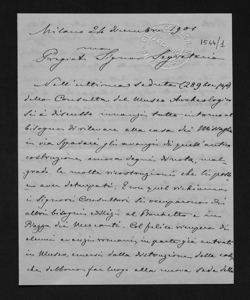 Milano 24 dicembre 1901
1544/1
Pregiat.mo Signor Segretario
Nell'ultima seduta (28 9bre
della Consulta del Museo Archeologico
si è discusso intorno al
bisogno di rilevare alla casa dei Missaglia
in via Spadari gli avanzi di quell'antica
costruzione, ancora degni di nota, mal
grado le molte ricostruzioni che li
deturpati. E con quel richiamo
i Signori Consultori si occuparono di
altri bisogni edilizi al Broletto e in
Piazza dei Mercanti. Col felice ricupero di
alcuni avanzi romani, in parte già entrati
in Museo, emersi dalla distruzione delle case
che debbono far luogo alla nuova sede della